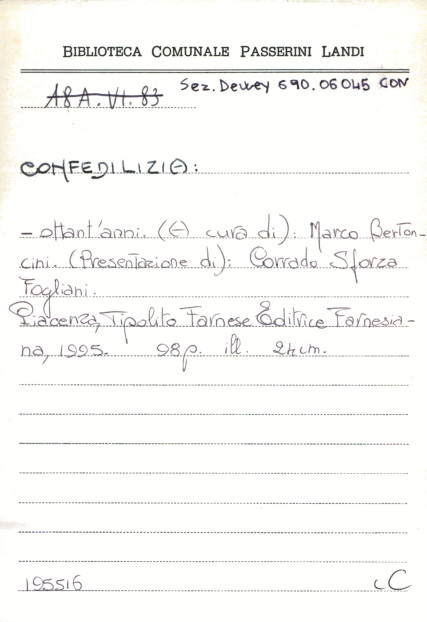 BIBLIOTECA COMUNALE PASSERINI LANDI
A8A.VI.83 Sez. Dewey 690.06045 CON
CONFEDILIZIA:
- ottant'anni. (A cura di): Marco Berton-
cini. (Presentazione di): Corrado Sforza
Fogliani.
Piacenza, Tipolito Farnese Editrice Farnesia-
na, 1995. 98p. ill. 24cm.
195516 C